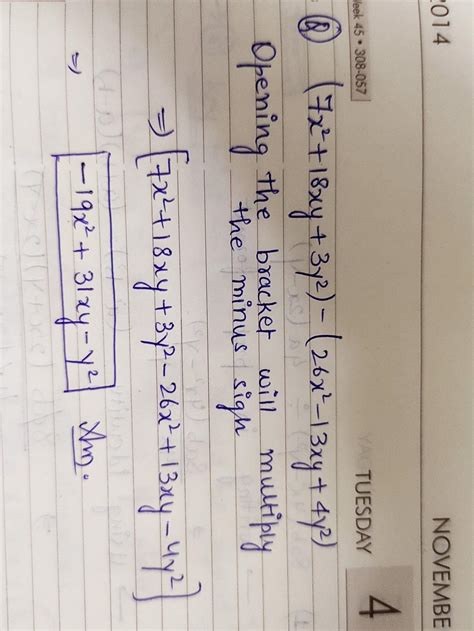 2014
NOVEMBE
Week 45 • 308-057
TUESDAY
4
Q (7x²+18xy+3y²)-(26x²-13xy+4y²)
Opening the bracket will multiply
the minus sign
⇒ [7x²+18xy+3y²-26x²+13xy-4y²]
⇒ -19x²+31xy-y² Ans.